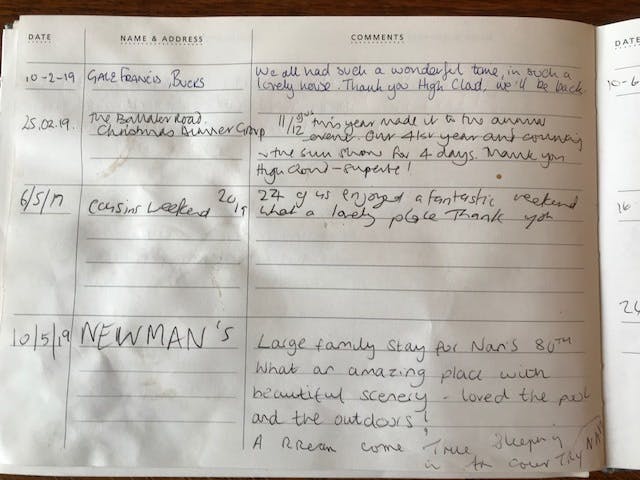 DATE NAME & ADDRESS COMMENTS DATE
10-2-19 GALE FRANCIS, BUCKS We all had such a wonderful time, in such a
lovely house. Thank you High Clad, we'll be back.
25.02.19. The Ballater Road. 11/12 gus this year made it to the annual
Christmas Dinner Group event. Our 41st year and counting
& the sun shone for 4 days. Thank you
High Cloud - superb!
6/5/19 Cousins weekend 2019 22 of us enjoyed a fantastic weekend
What a lovely place Thank you
10/5/19 NEWMAN'S Large family stay for Nan's 80TH
What an amazing place with
beautiful scenery - loved the pool
and the outdoors!
A Dream come True Sleeping
in the counTRY NAN
10-6
16
24